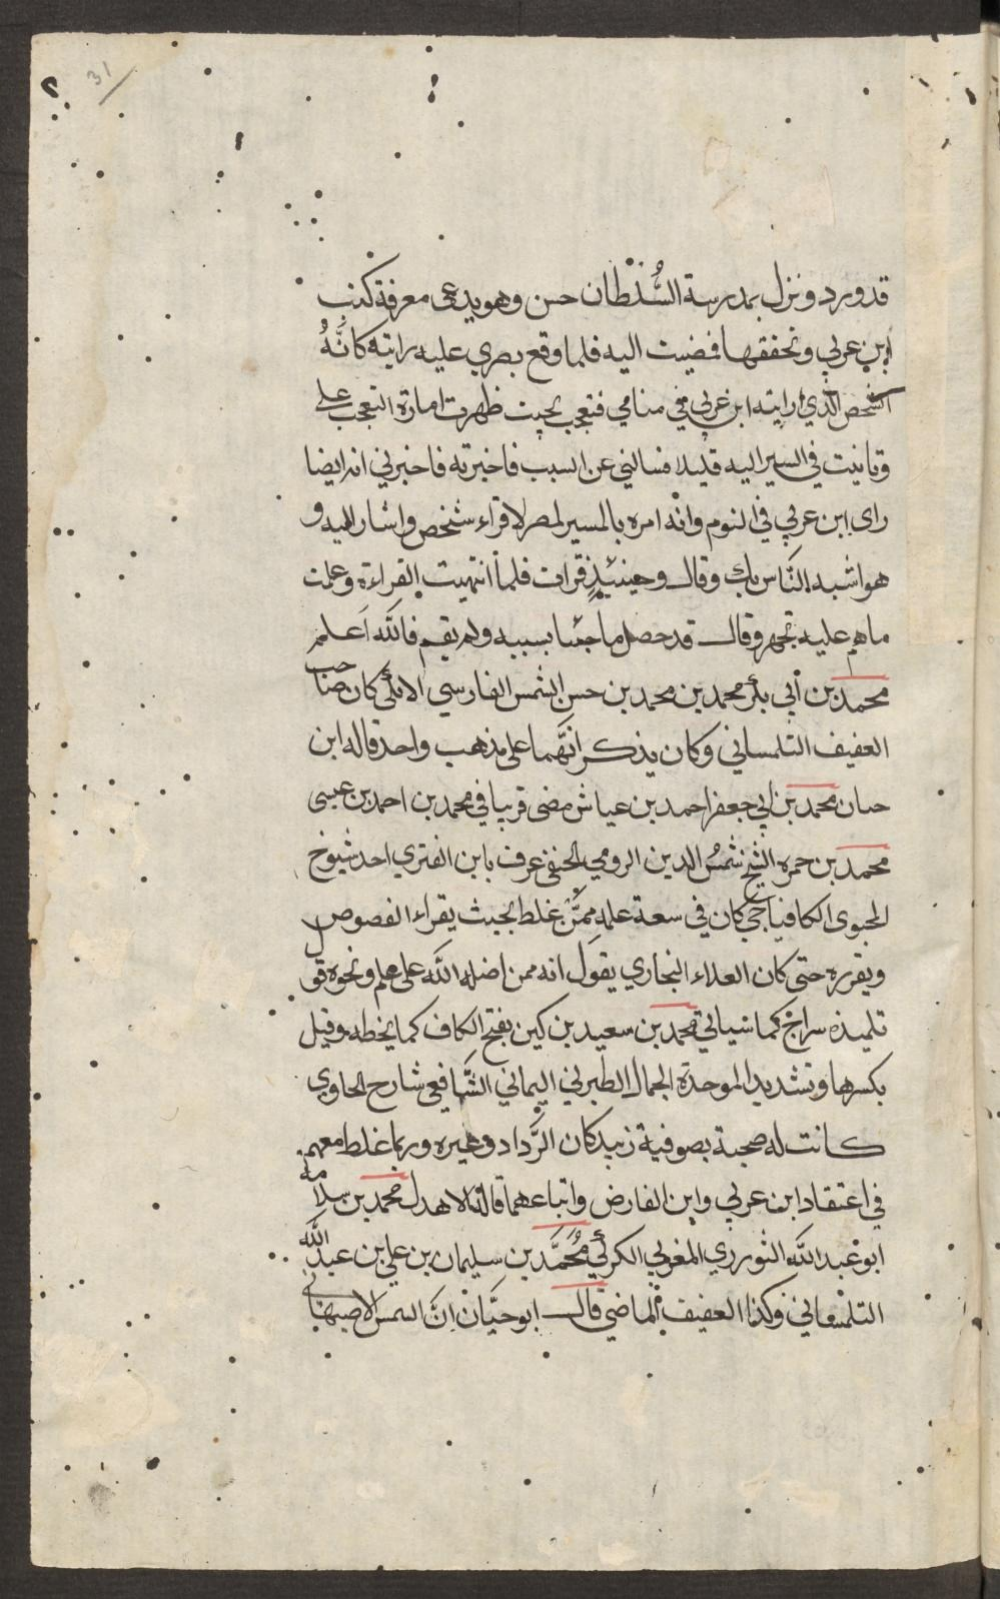 31
قد ورد ونزل بمدرسة السُّلطان حسن وهو يدعى معرفة كتب
ابن عربي وتحققها فمضيت اليه فلما وقع بصري عليه رايته كانَّهُ
الشخص الذي ارانيه ابن عربي في منامي فتعجب بحيث ظهرت امارة التعجب علي
وتانيت في السير اليه قليلا فسالني عن السبب فاخبرته فاخبرني انه ايضا
راى ابن عربي في النوم وانه امره بالمسير لمصر لاقراء شخص واشار اليه و
هو اشبه الناس بك وقال وحينئذٍ فقرات فلما انتهيت القراءة وعلمت
ما هم عليه تجهز وقال قد حصل ما جئنا بسببه ولم يقم فالله اَعلم
محمد بن أبي بكر محمد بن محمد بن حسن الشمس الفارسي الايكي كان صاحب
العفيف التلمساني وكان يذكر انَّهما على مذهب واحد قاله ابن
حبان محمد بن ابي جعفر احمد بن عياش مضى قريبا في محمد بن احمد بن عيسى
محمد بن حمزه الشيخ شمسُ الدين الرومي الحنفي عرف بابن الفنري احد شيوخ
المحيوى الكافياجي كان في سعة علمه ممَّن غلط بحيث يقراء الفصوص
ويقرره حتى كان العلاء البخاري يقول انه ممن اضله الله على علم ونحوه قول
تلميذه سراج كما سياتي محمد بن سعيد بن كبن بفتح الكاف كما بخطه وقيل
بكسرها وتشديد الموحدة الجمال الطبري اليماني الشَّافعي شارح الحاوي
كانت له صحبة بصوفية زبيد كان الرَّداد وغيره وربما غلط معهم
في اعتقاد ابن عربي وابن الفارض واتباعهما قاله الاهدل محمد بن سلامه
ابو عبد الله التوزري المغربي الكركي مُحَمَّد بن سليمان بن علي بن عبد الله
التلمساني وكذا العفيف الماضي قال ابو حيَّان انَّ الشمس الاصبهاني